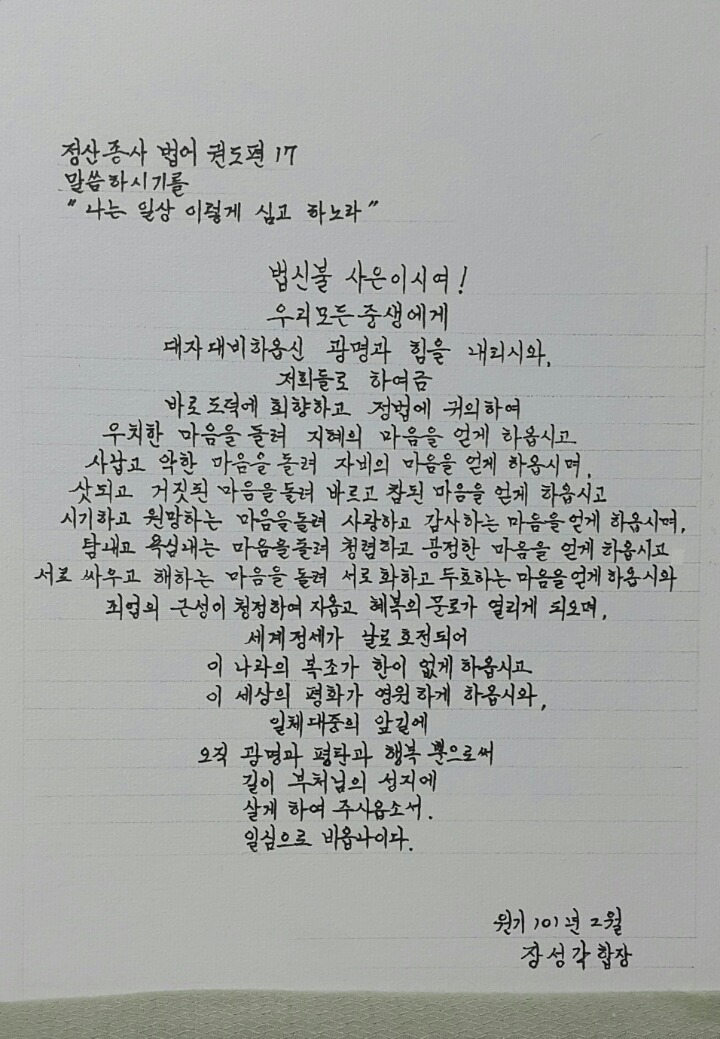 정산종사 법어 권도편 17
말씀하시기를
"나는 일상 이렇게 심고 하노라"
법신불 사은이시여!
우리모든중생에게
대자대비하옵신 광명과 힘을 내리시와,
저희들로 하여금
바로 도덕에 회향하고 정법에 귀의하여
우치한 마음을 돌려 지혜의 마음을 얻게 하옵시고
사납고 악한 마음을 돌려 자비의 마음을 얻게 하옵시며,
삿되고 거짓된 마음을 돌려 바르고 참된 마음을 얻게 하옵시고
시기하고 원망하는 마음을 돌려 사랑하고 감사하는 마음을 얻게 하옵시며,
탐내고 욕심내는 마음을 돌려 청렴하고 공정한 마음을 얻게 하옵시고
서로 싸우고 해하는 마음을 돌려 서로 화하고 두호하는 마음을 얻게 하옵시와
죄업의 근성이 청정하여 지옵고 혜복의 문로가 열리게 되오며,
세계정세가 날로 호전되어
이 나라의 복조가 한이 없게 하옵시고
이 세상의 평화가 영원하게 하옵시와,
일체대중의 앞길에
오직 광명과 평탄과 행복 뿐으로써
길이 부처님의 성지에
살게 하여 주시옵소서.
일심으로 비옵나이다.
원기 101년 2월
장성각 합장